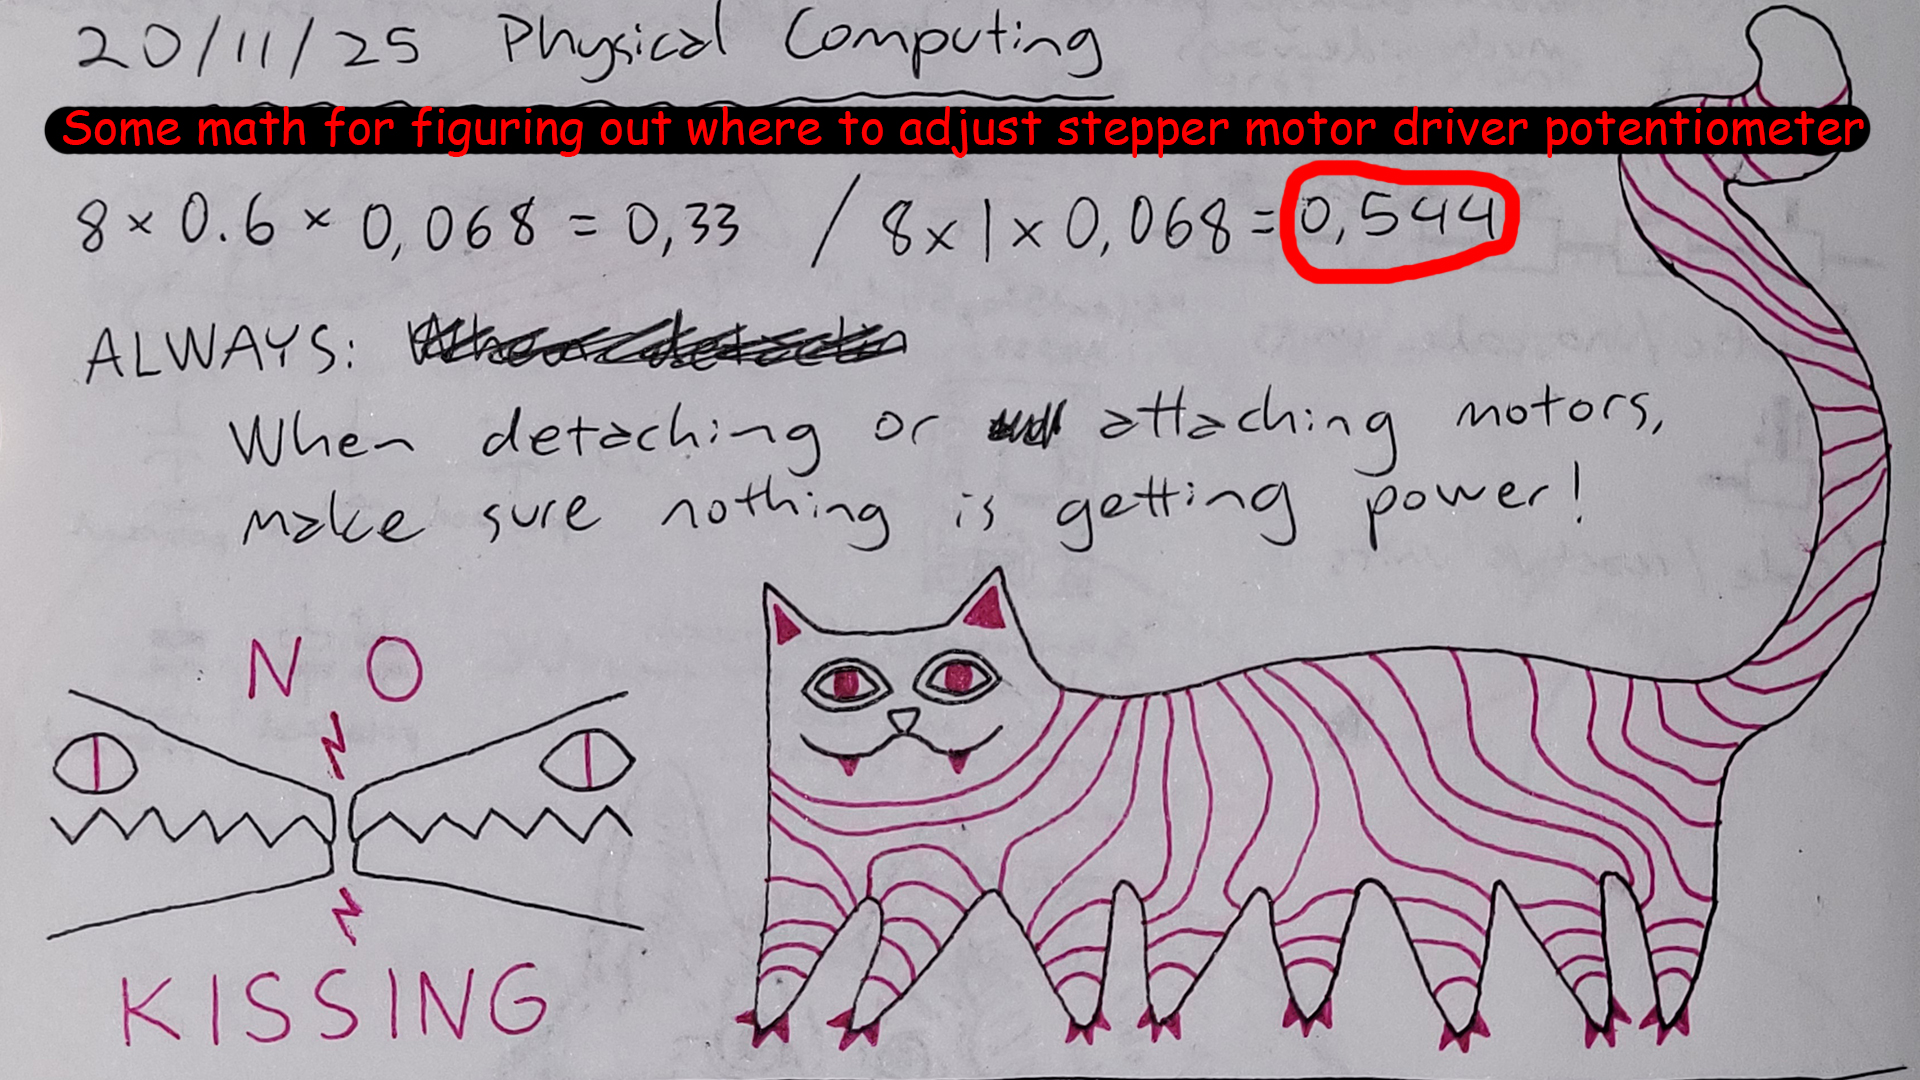 20/11/25 Physical Computing
Some math for figuring out where to adjust stepper motor driver potentiometer
8 × 0.6 × 0,068 = 0,33 / 8 × 1 × 0,068 = 0,544
ALWAYS:
When detaching or attaching motors,
make sure nothing is getting power!
NO
KISSING